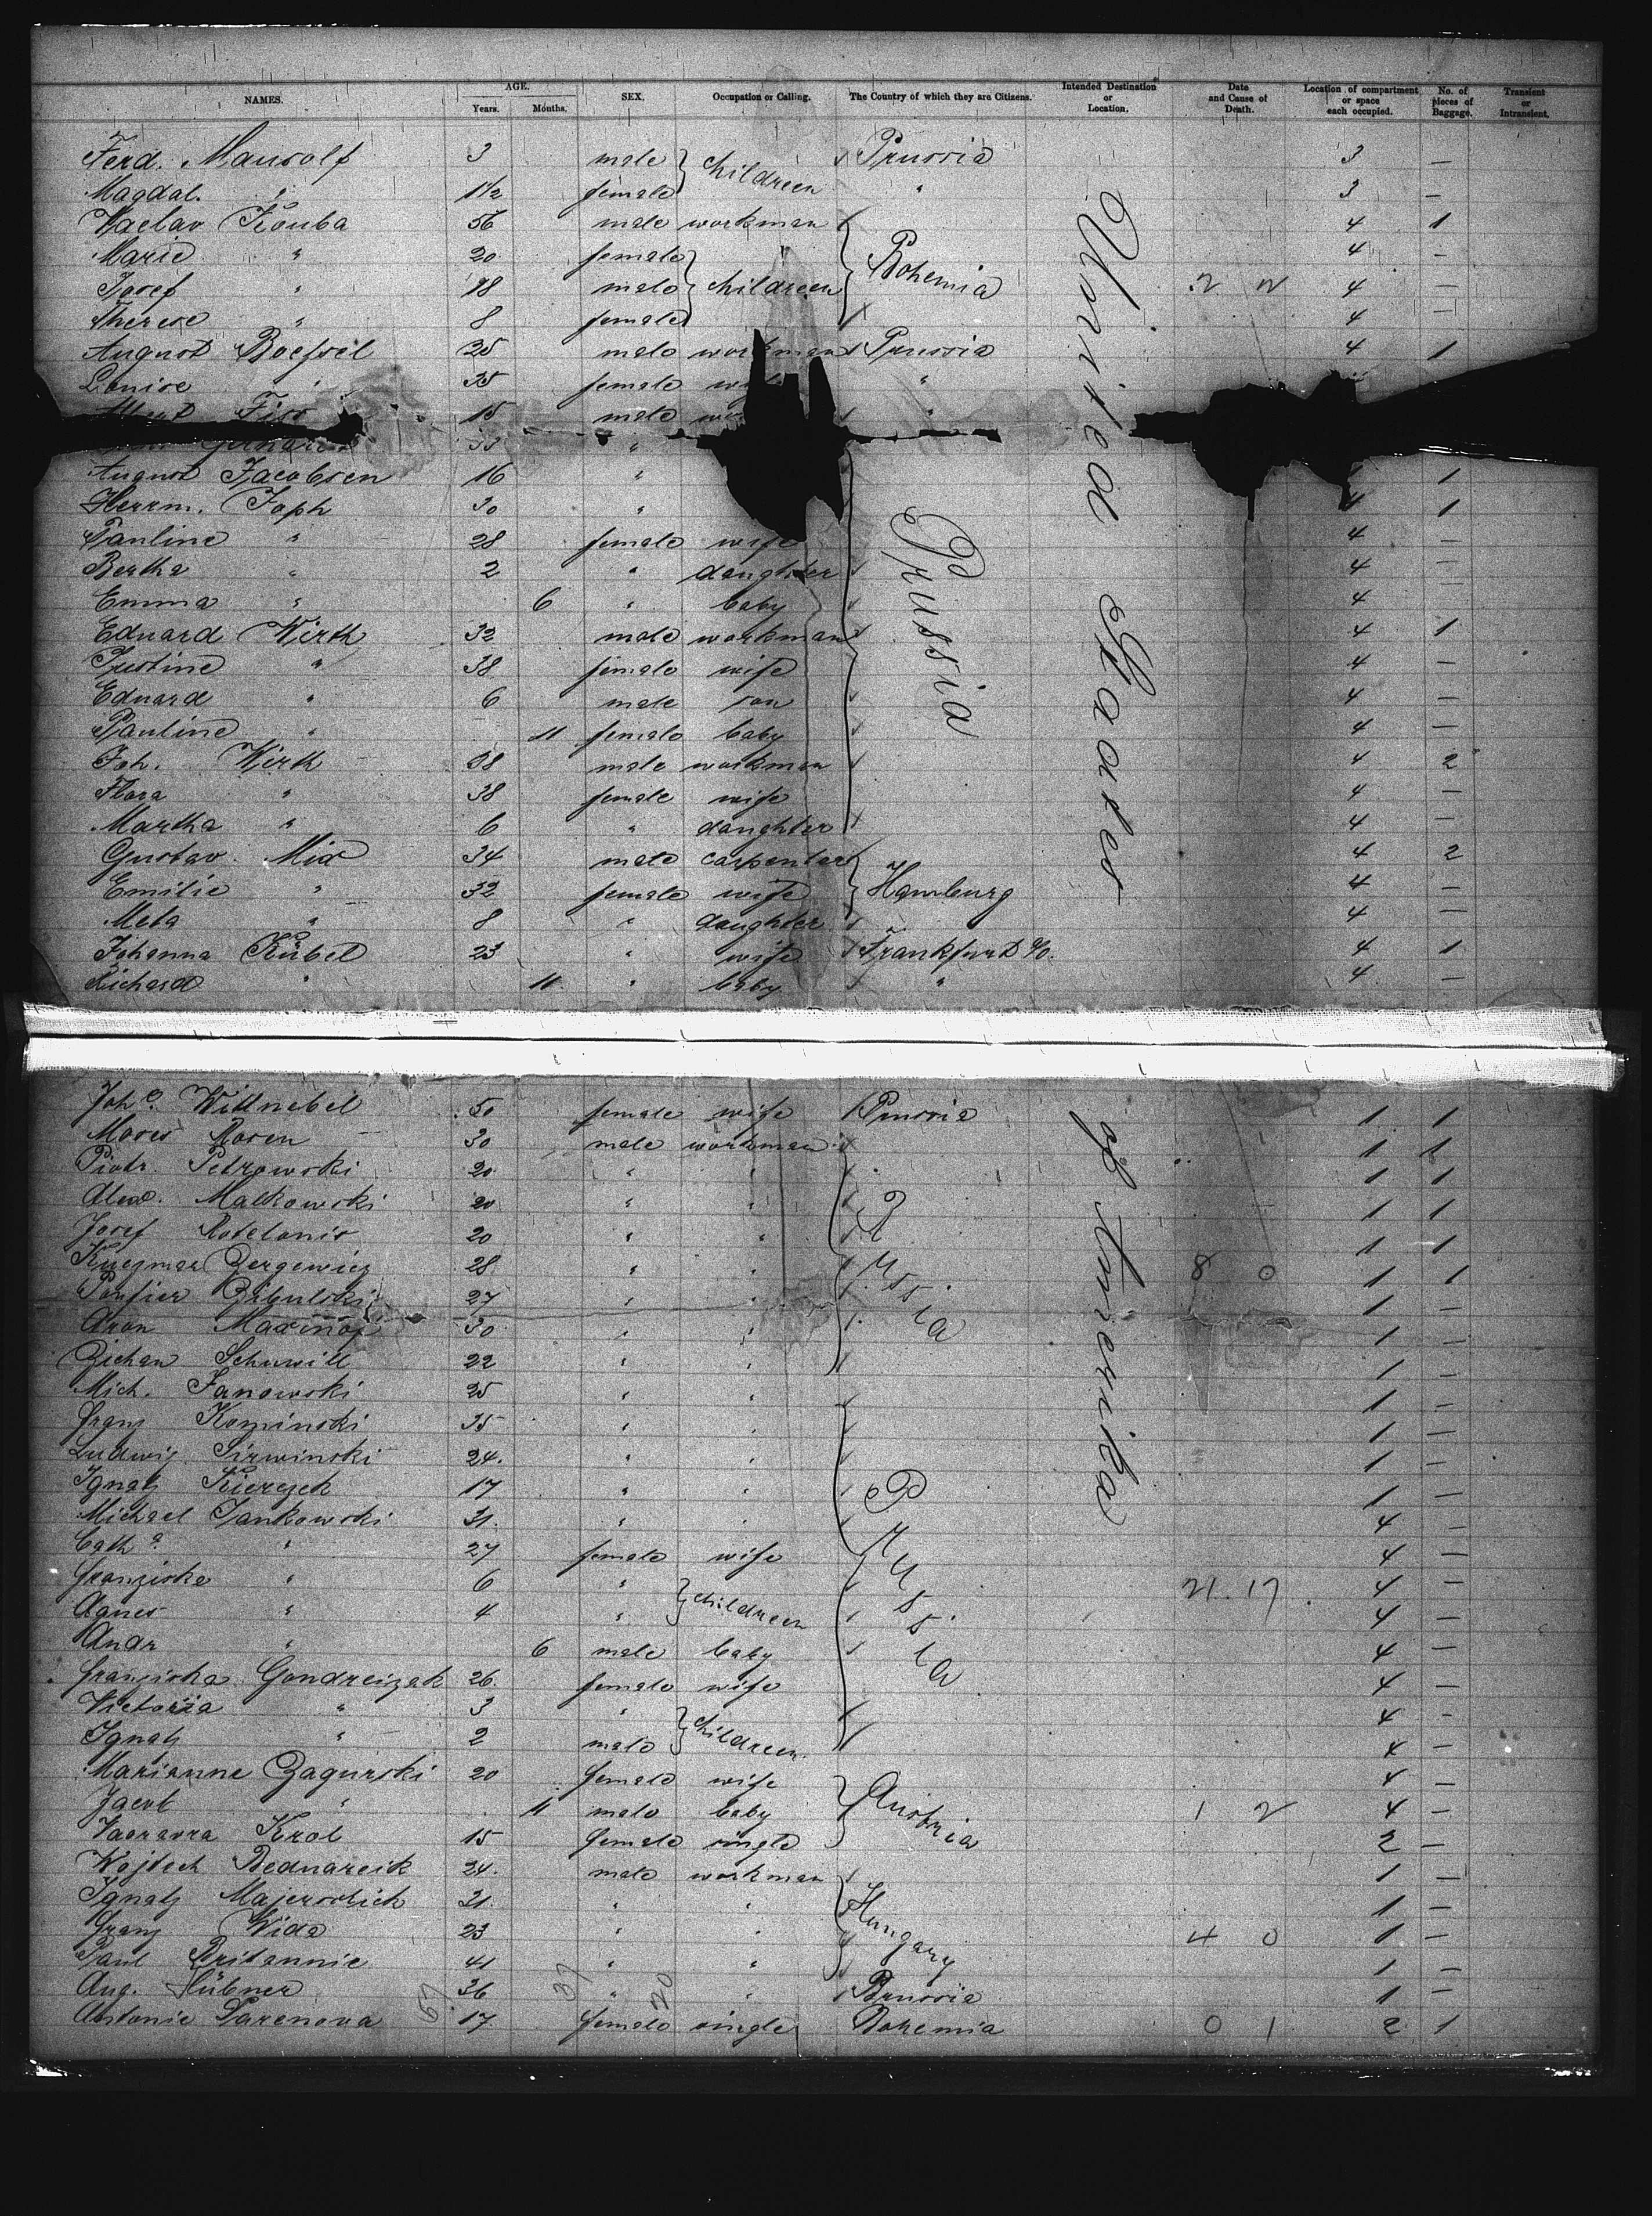 NAMES. AGE. SEX. Occupation or Calling. The Country of which they are Citizens. Intended Destination or Location. Date and Cause of Death. Location of compartment or space each occupied. No. of pieces of Baggage. Transient or Intransient.
Years. Months.
Ferd. Mansolf 3 male children Prussia 3 —
Magdal. " 1 1/2 female " 3 —
Vaclav Kouba 56 male workman 4 1
Marie " 20 female 4 —
Josef " 18 male children Bohemia 2 2 4 —
Therese " 8 female 4 —
August Boefsel 35 male workman Prussia 4 1
Louise " 35 female wife "
15 male "
33 "
August Jacobsen 16 " 1
Herrm. Joph 30 " 4 1
Pauline " 28 female wife 4 —
Bertha " 2 " daughter 4 —
Emma " 6 " baby 4
Eduard Wirth 32 male workman Prussia 4 1
Justine " 38 female wife 4 —
Eduard " 6 male son 4 —
Pauline " 11 female baby 4 —
Joh. Wirth 38 male workman 4 2
Flora " 38 female wife 4 —
Martha " 6 " daughter 4 —
Gustav Mix 34 male carpenter 4 2
Emilie " 32 female wife Hamburg 4 —
Meta " 8 " daughter 4 —
Johanna Kübel 23 " wife Frankfurt a/o. 4 1
Richard " 11 " baby " 4 —
United States
Joha. Willnebel 50 female wife Prussia 1 1
Moses Rosen 30 male workman 1 1
Piotr. Petrowski 20 " " 1 1
Alex. Malkowski 20 " " 1 1
Josef 20 " " 1 1
28 " " Russia 8 0 1 1
27 " " 1 —
Aron 30 " " 1 —
22 " " 1 —
Mich. Janowski 25 " " 1 —
Franz Kominski 35 " " 1 —
Ludwig Sirwinski 24. " " 1 —
Ignatz 17 " " 1 —
Michael Jankowski 31. " " Prussia 4 —
Catha. " 27 female wife 4 —
Franziska " 6 " children 21. 17 4 —
Agnes " 4 " 4 —
Andr " 6 male baby 4 —
Franziska Gondreizak 26. female wife 4 —
Victoria " 3 " children 4 —
Ignatz " 2 male 4 —
Marianne Zagurski 20 female wife 4 —
Jacob " 11 male baby Austria 1 2 4 —
Krol 15 female single 2 —
Wojtech Bednarcik 24. male workman 1 —
Ignatz 21. " " Hungary 1 —
Franz Wida 23 " " 4 0 1 —
Paul Britannic 41 " " 1 —
Aug. Hübner 36 " " Prussia 1 —
Antonie 17 female single Bohemia 0 1 2 1
of Amerika
67 37 20